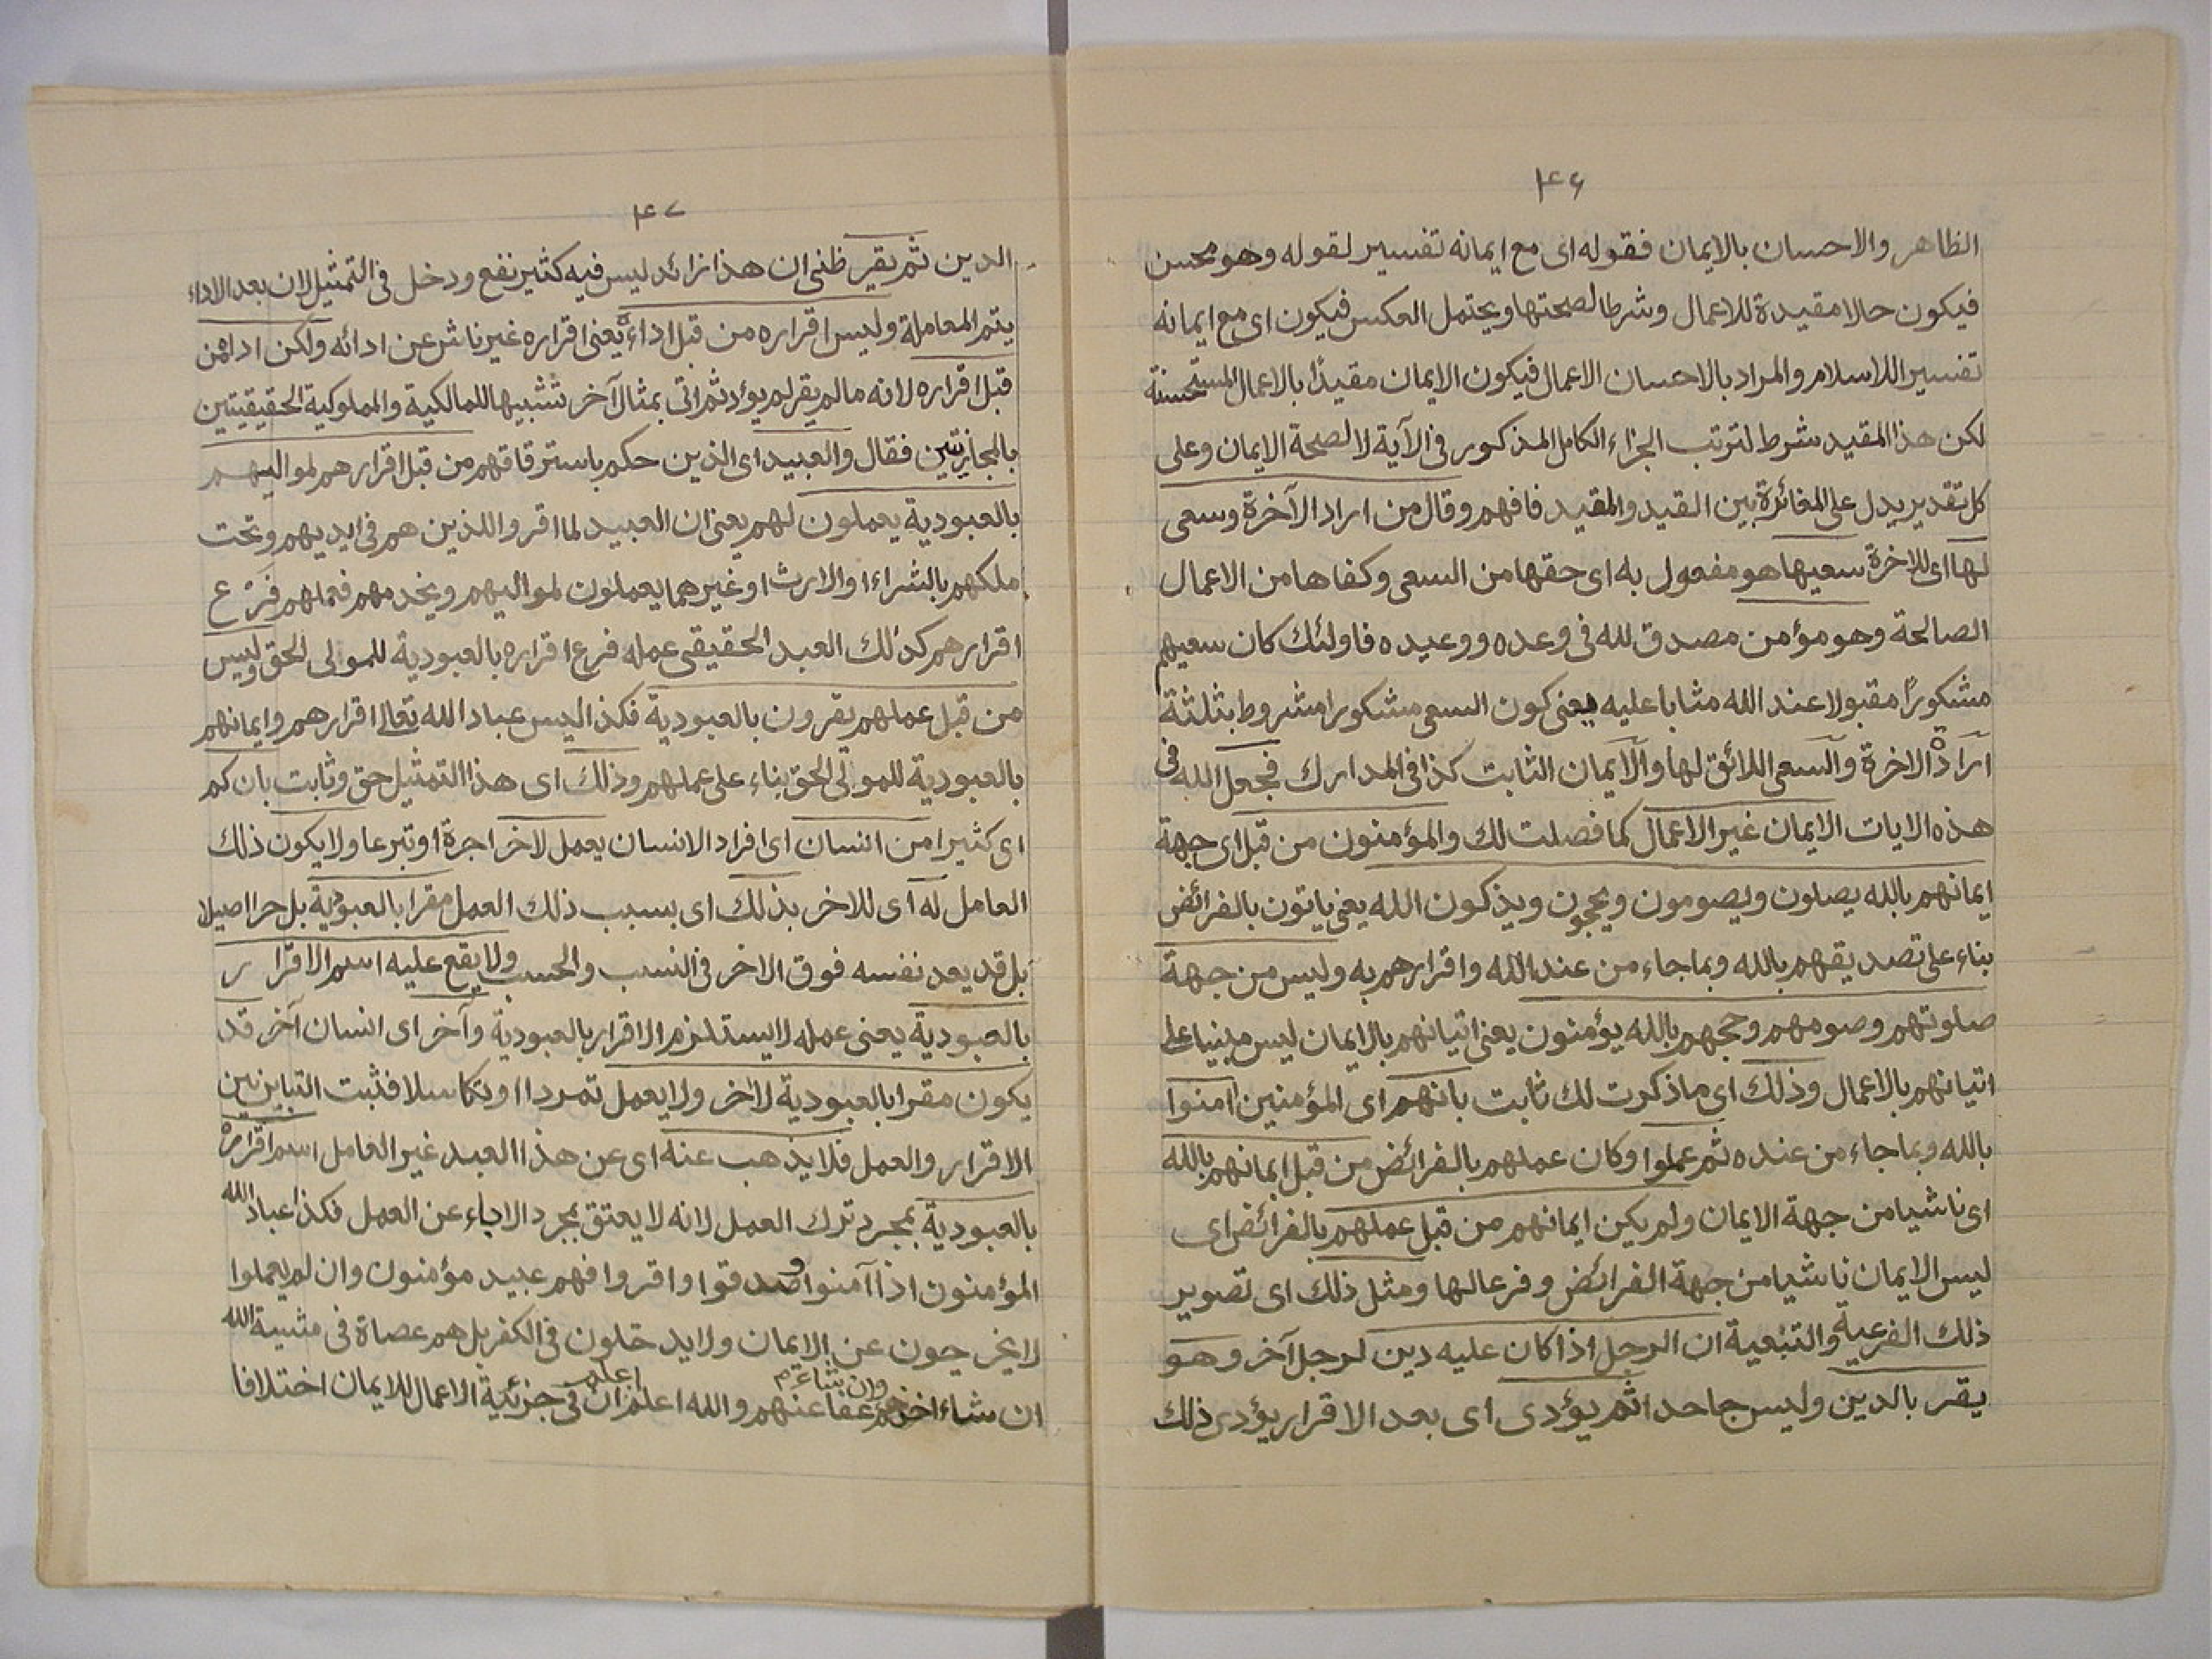 ۴۶
الظاهر والاحسان بالايمان فقوله اى مع ايمانه تفسير لقوله وهو محسن
فيكون حالا مقيدة للاعمال وشرطا لصحتها ويحتمل العكس فيكون اى مع ايمانه
تفسير اللاسلام والمراد بالاحسان الاعمال فيكون الايمان مقيدًا بالاعمال المستحسنة
لكن هذا المقيد شرط لترتب الجزاء الكامل المذكور فى الآية لا لصحة الايمان وعلى
كل تقدير يدل على المغائرة بين القيد والمقيد فافهم وقال من اراد الآخرة وسعى
لها اى للاخرة سعيها هو مفعول به اى حقها من السعى وكفاها من الاعمال
الصالحة وهو مؤمن مصدق لله فى وعده ووعيده فاولئك كان سعيهم
مشكورًا مقبولا عند الله مثابا عليه يعنى كون السعى مشكورا مشروط بثلثة
ارادة الاخرة والسعى اللائق لها والايمان الثابت كذا فى المدارك فجعل الله فى
هذه الايات الايمان غير الاعمال كما فصلت لك والمؤمنون من قبل اى جهة
ايمانهم بالله يصلون ويصومون ويحجون ويذكون الله يعنى ياتون بالفرائض
بناء على تصديقهم بالله وبما جاء من عند الله واقرارهم به وليس من جهة
صلوتهم وصومهم وحجهم بالله يؤمنون يعنى اتيانهم بالايمان ليس مبنيا على
اتيانهم بالاعمال وذلك اى ما ذكرت لك ثابت بانهم اى المؤمنين امنوا
بالله وبما جاء من عنده ثم عملوا وكان عملهم بالفرائض من قبل ايمانهم بالله
اى ناشيا من جهة الايمان ولم يكن ايمانهم من قبل عملهم بالفرائض اى
ليس الايمان ناشيا من جهة الفرائض وفرعا لها ومثل ذلك اى تصوير
ذلك الفرعية والتبعية ان الرجل اذا كان عليه دين لرجل آخر وهو
يقر بالدين وليس جاحدا ثم يؤدى اى بعد الاقرار يؤدى ذلك
۴۷
الدين ثم يقر ظنى ان هذا زائد ليس فيه كثير نفع ودخل فى التمثيل لان بعد الاداء
يتم المعاملة وليس اقراره من قبل اداءه يعنى اقراره غير ناش عن ادائه ولكن اداه من
قبل اقراره لانه مالم يقر لم يؤد ثم اتى بمثال آخر تشبيها للمالكية والمملوكية الحقيقيتين
بالمجازيتين فقال والعبيد اى الذين حكم باسترقاقهم من قبل اقرارهم لمواليهم
بالعبودية يعملون لهم يعنى ان العبيد لما اقروا للذين هم فى ايديهم وتحت
ملكهم بالشراء او الارث او غيرهما يعملون لمواليهم ويخدمهم فعملهم فرع
اقرارهم كذلك العبد الحقيقى عمله فرع اقراره بالعبودية للمولى الحق وليس
من قبل عملهم يقرون بالعبودية فكذا ليس عباد الله تعالى اقرارهم وايمانهم
بالعبودية للمولى الحق بناء على عملهم وذلك اى هذا التمثيل حق وثابت بان كم
اى كثيرا من انسان اى افراد الانسان يعمل لاخر اجرة او تبرعا ولا يكون ذلك
العامل له اى للاخر بذلك اى بسبب ذلك العمل مقرا بالعبودية بل حرا اصيلا
بل قد يعد نفسه فوق الاخر فى النسب والحسب ولا يقع عليه اسم الاقرار
بالعبودية يعنى عمله لا يستلزم الاقرار بالعبودية وآخر اى انسان آخر قد
يكون مقرا بالعبودية لاخر ولا يعمل تمردا او تكاسلا فثبت التباين بين
الاقرار والعمل فلا يذهب عنه اى عن هذا العبد غير العامل اسم اقراره
بالعبودية بمجرد ترك العمل لانه لا يعتق بمجرد الاباء عن العمل فكذا عباد الله
المؤمنون اذا آمنوا وصدقوا واقروا فهم عبيد مؤمنون وان لم يعملوا
لا يخرجون عن الايمان ولا يدخلون فى الكفر بل هم عصاة فى مشية الله
ان شاء اخذهم وان شاء عفا عنهم والله اعلم اعلم ان فى جزئية الاعمال للايمان اختلافا